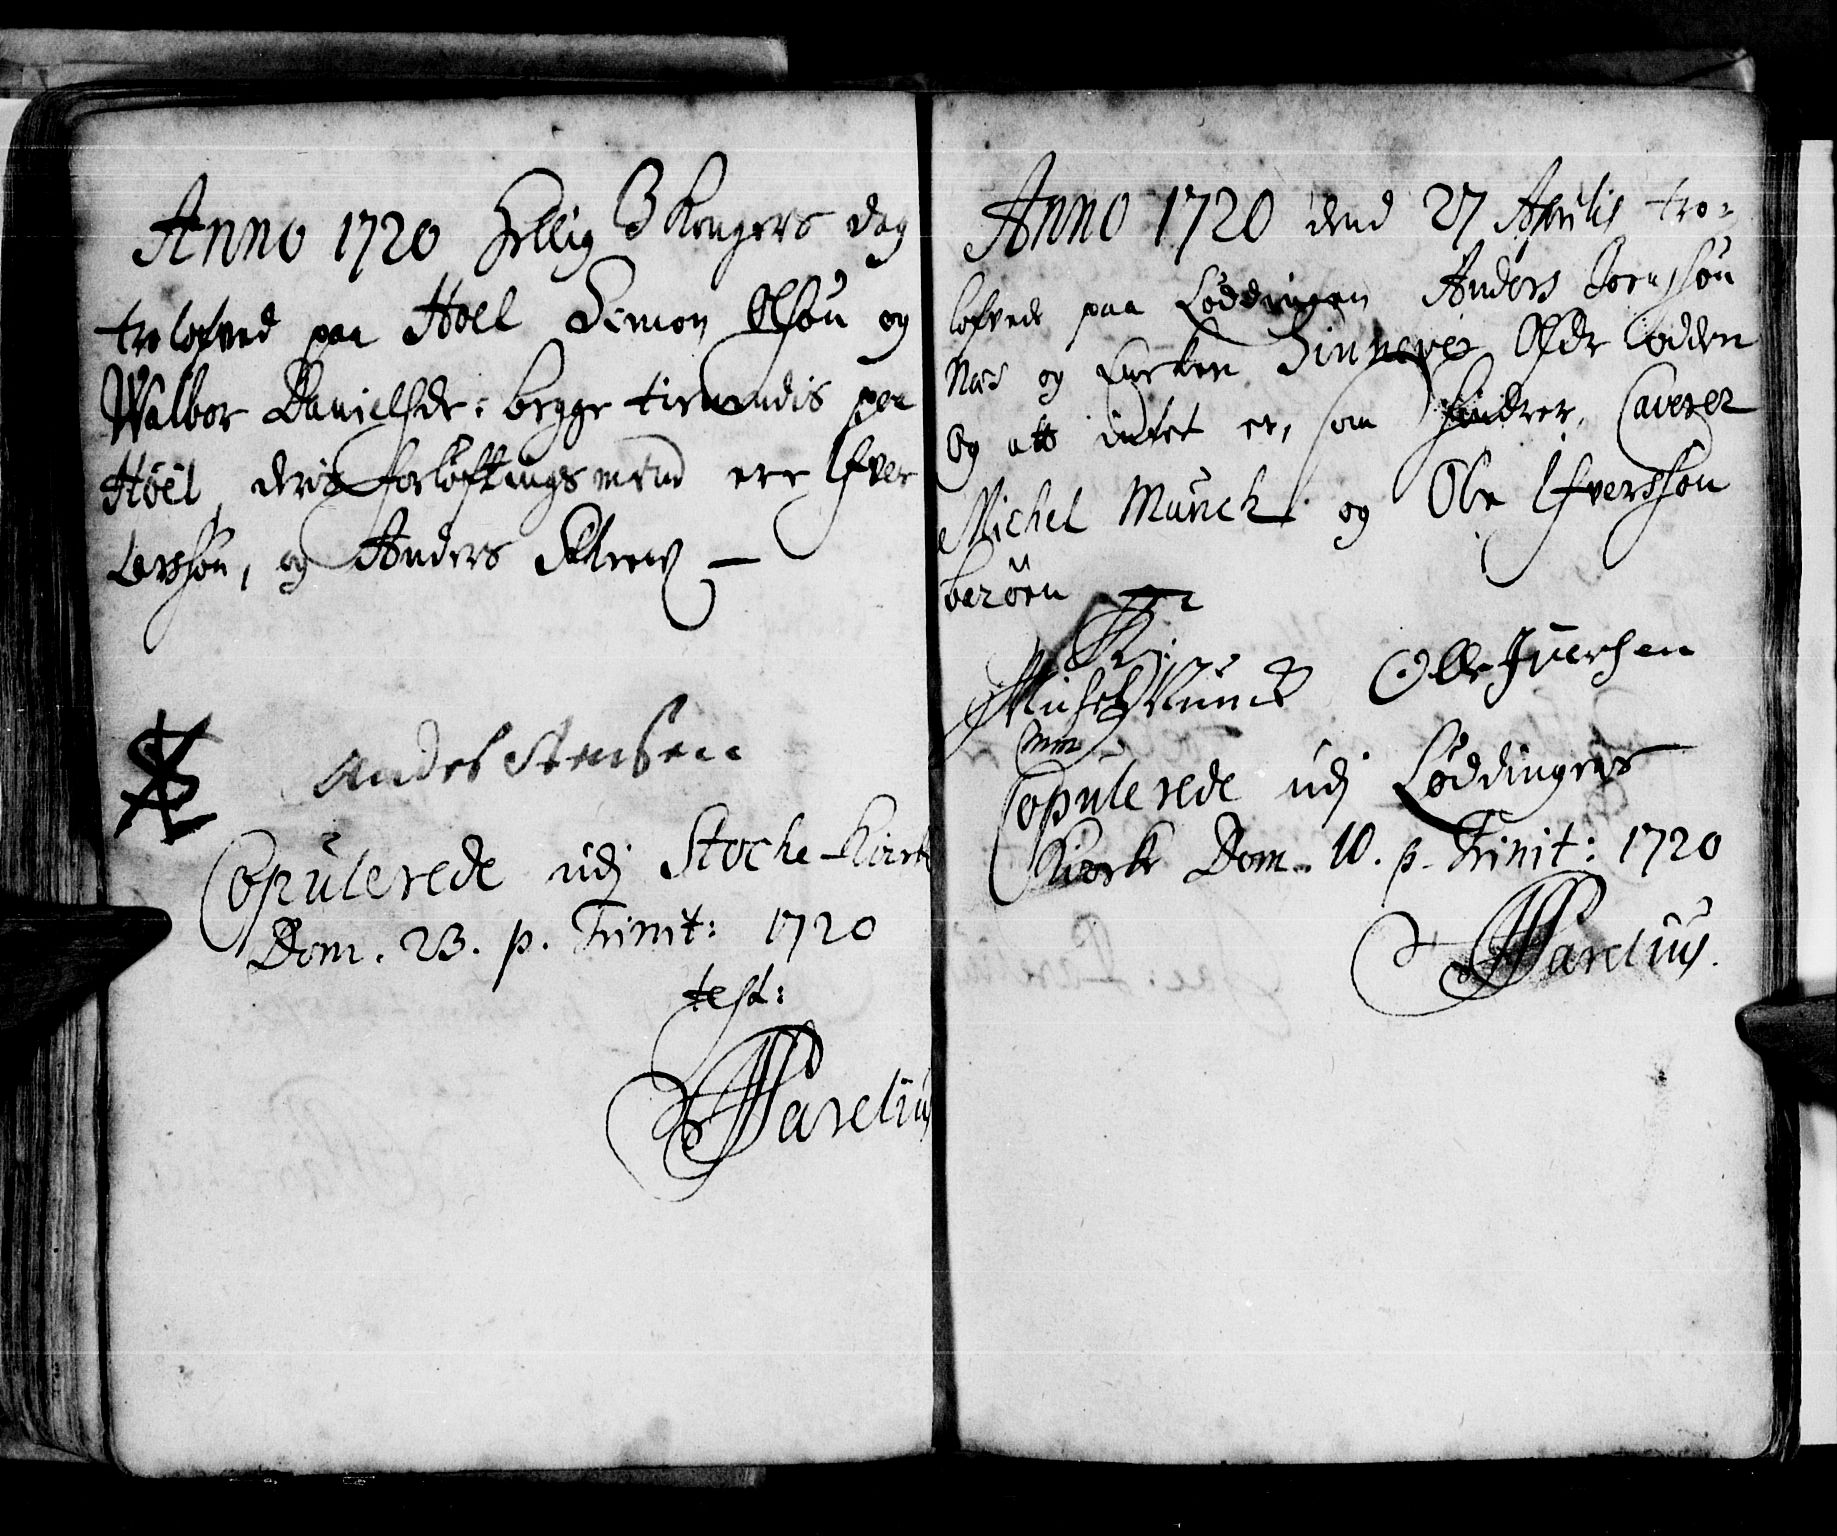 Anno 1720 Hellig 3 Kongers dag
trolofved paa Hoel Simon Olsøn og
Walbor Danielsdr: begge tienendis paa
Höel, deris forlöftningsmend ere Ifver
Larssøn, og Anders
Andes Stensen
Copulerede udj Stocke-Kirke
Dom. 23. p. Trinit: 1720
test:
Harelius
Anno 1720 dend 27 Aprilis tro-
lofvede paa Løddingen Anders Joenssøn
Næs og Enken Sinnevei Olsdr Lodden
og att intet er, som hindrer, Caverer
Michel Munch og Ole Ifverssøn
berören
Michel Munck Olle Juersen
mm
Copulerede udj Løddingens
Kirke Dom. 10. p. Trinit: 1720
Harelius.